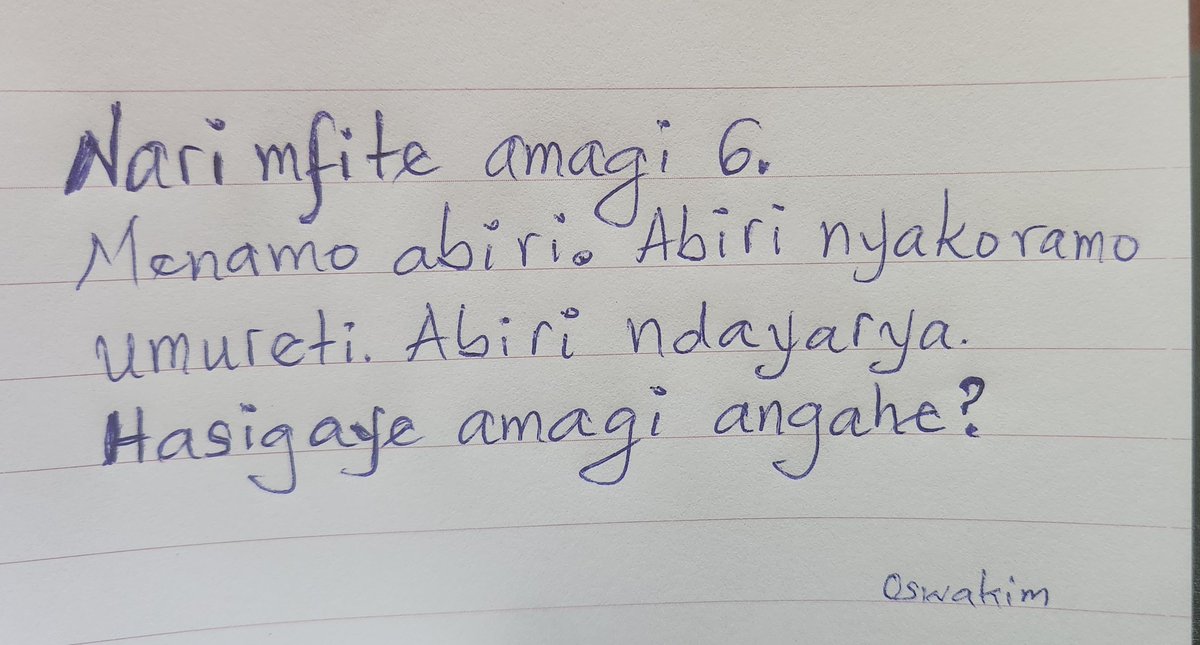 Nari mfite amagi 6.
Menamo abiri. Abiri nyakoramo
umureti. Abiri ndayarya.
Hasigaye amagi angahe?
Oswakim